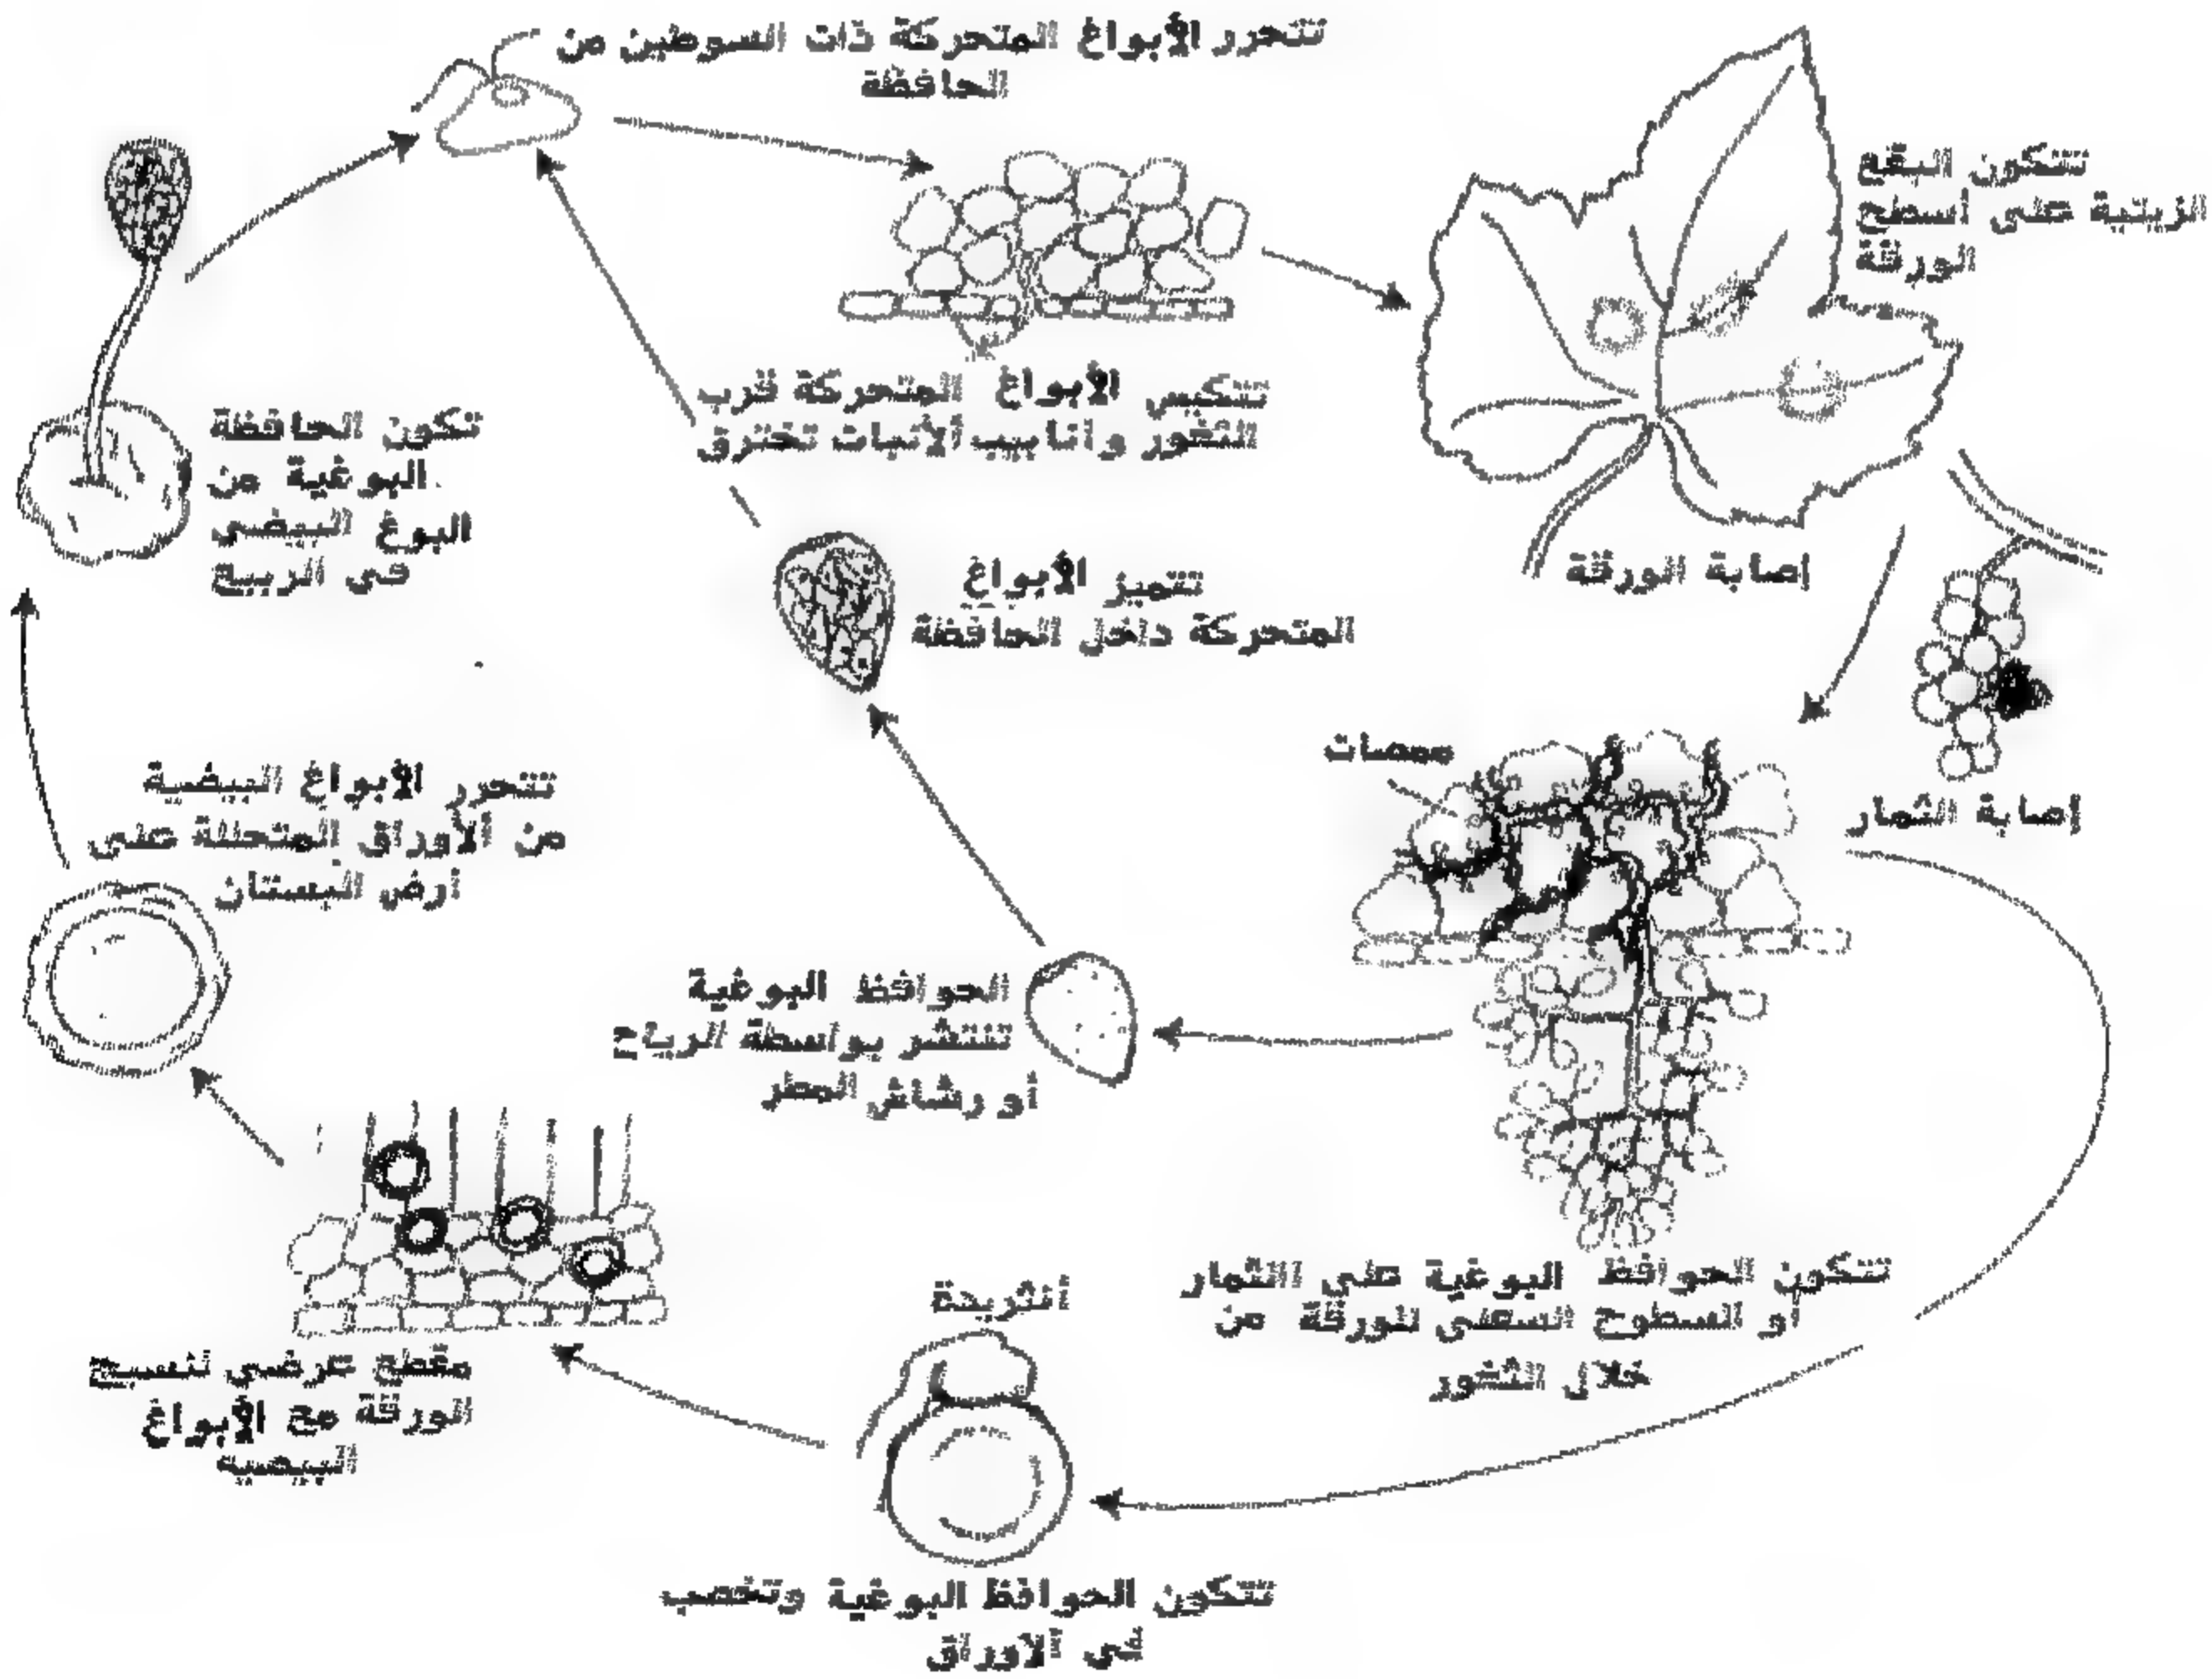 تتحرر الأبواغ المتحركة ذات السوطين من
الحافظة
تتكون البقع
الزيتية على أسطح
الورقة
تتكيس الأبواغ المتحركة قرب
الثغور وأنابيب الأنبات تخترق
تكون الحافظة
البوغية من
البوغ البيضي
في الربيع
إصابة الورقة
تتميز الأبواغ
المتحركة داخل الحافظة
ممصات
إصابة الثمار
تتحرر الأبواغ البيضية
من الأوراق المتحللة على
أرض البستان
الحوافظ البوغية
تنتشر بواسطة الرياح
أو رشاش المطر
تتكون الحوافظ البوغية على الثمار
أو السطوح السفلى للورقة من
خلال الثغور
أنثريدة
مقطع عرضي لنسيج
الورقة مع الأبواغ
البيضية
تتكون الحوافظ البوغية وتخصب
في الاوراق